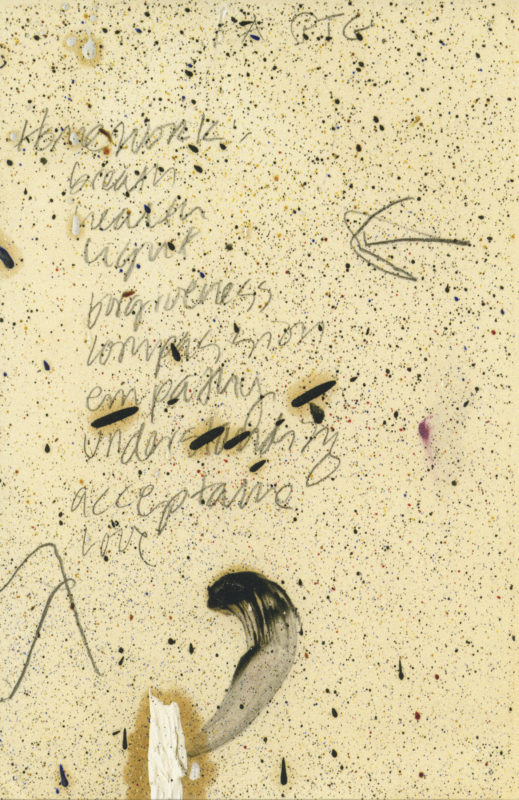 Homework,
breath
health
light
forgiveness
compassion
empathy
understanding
acceptance
love